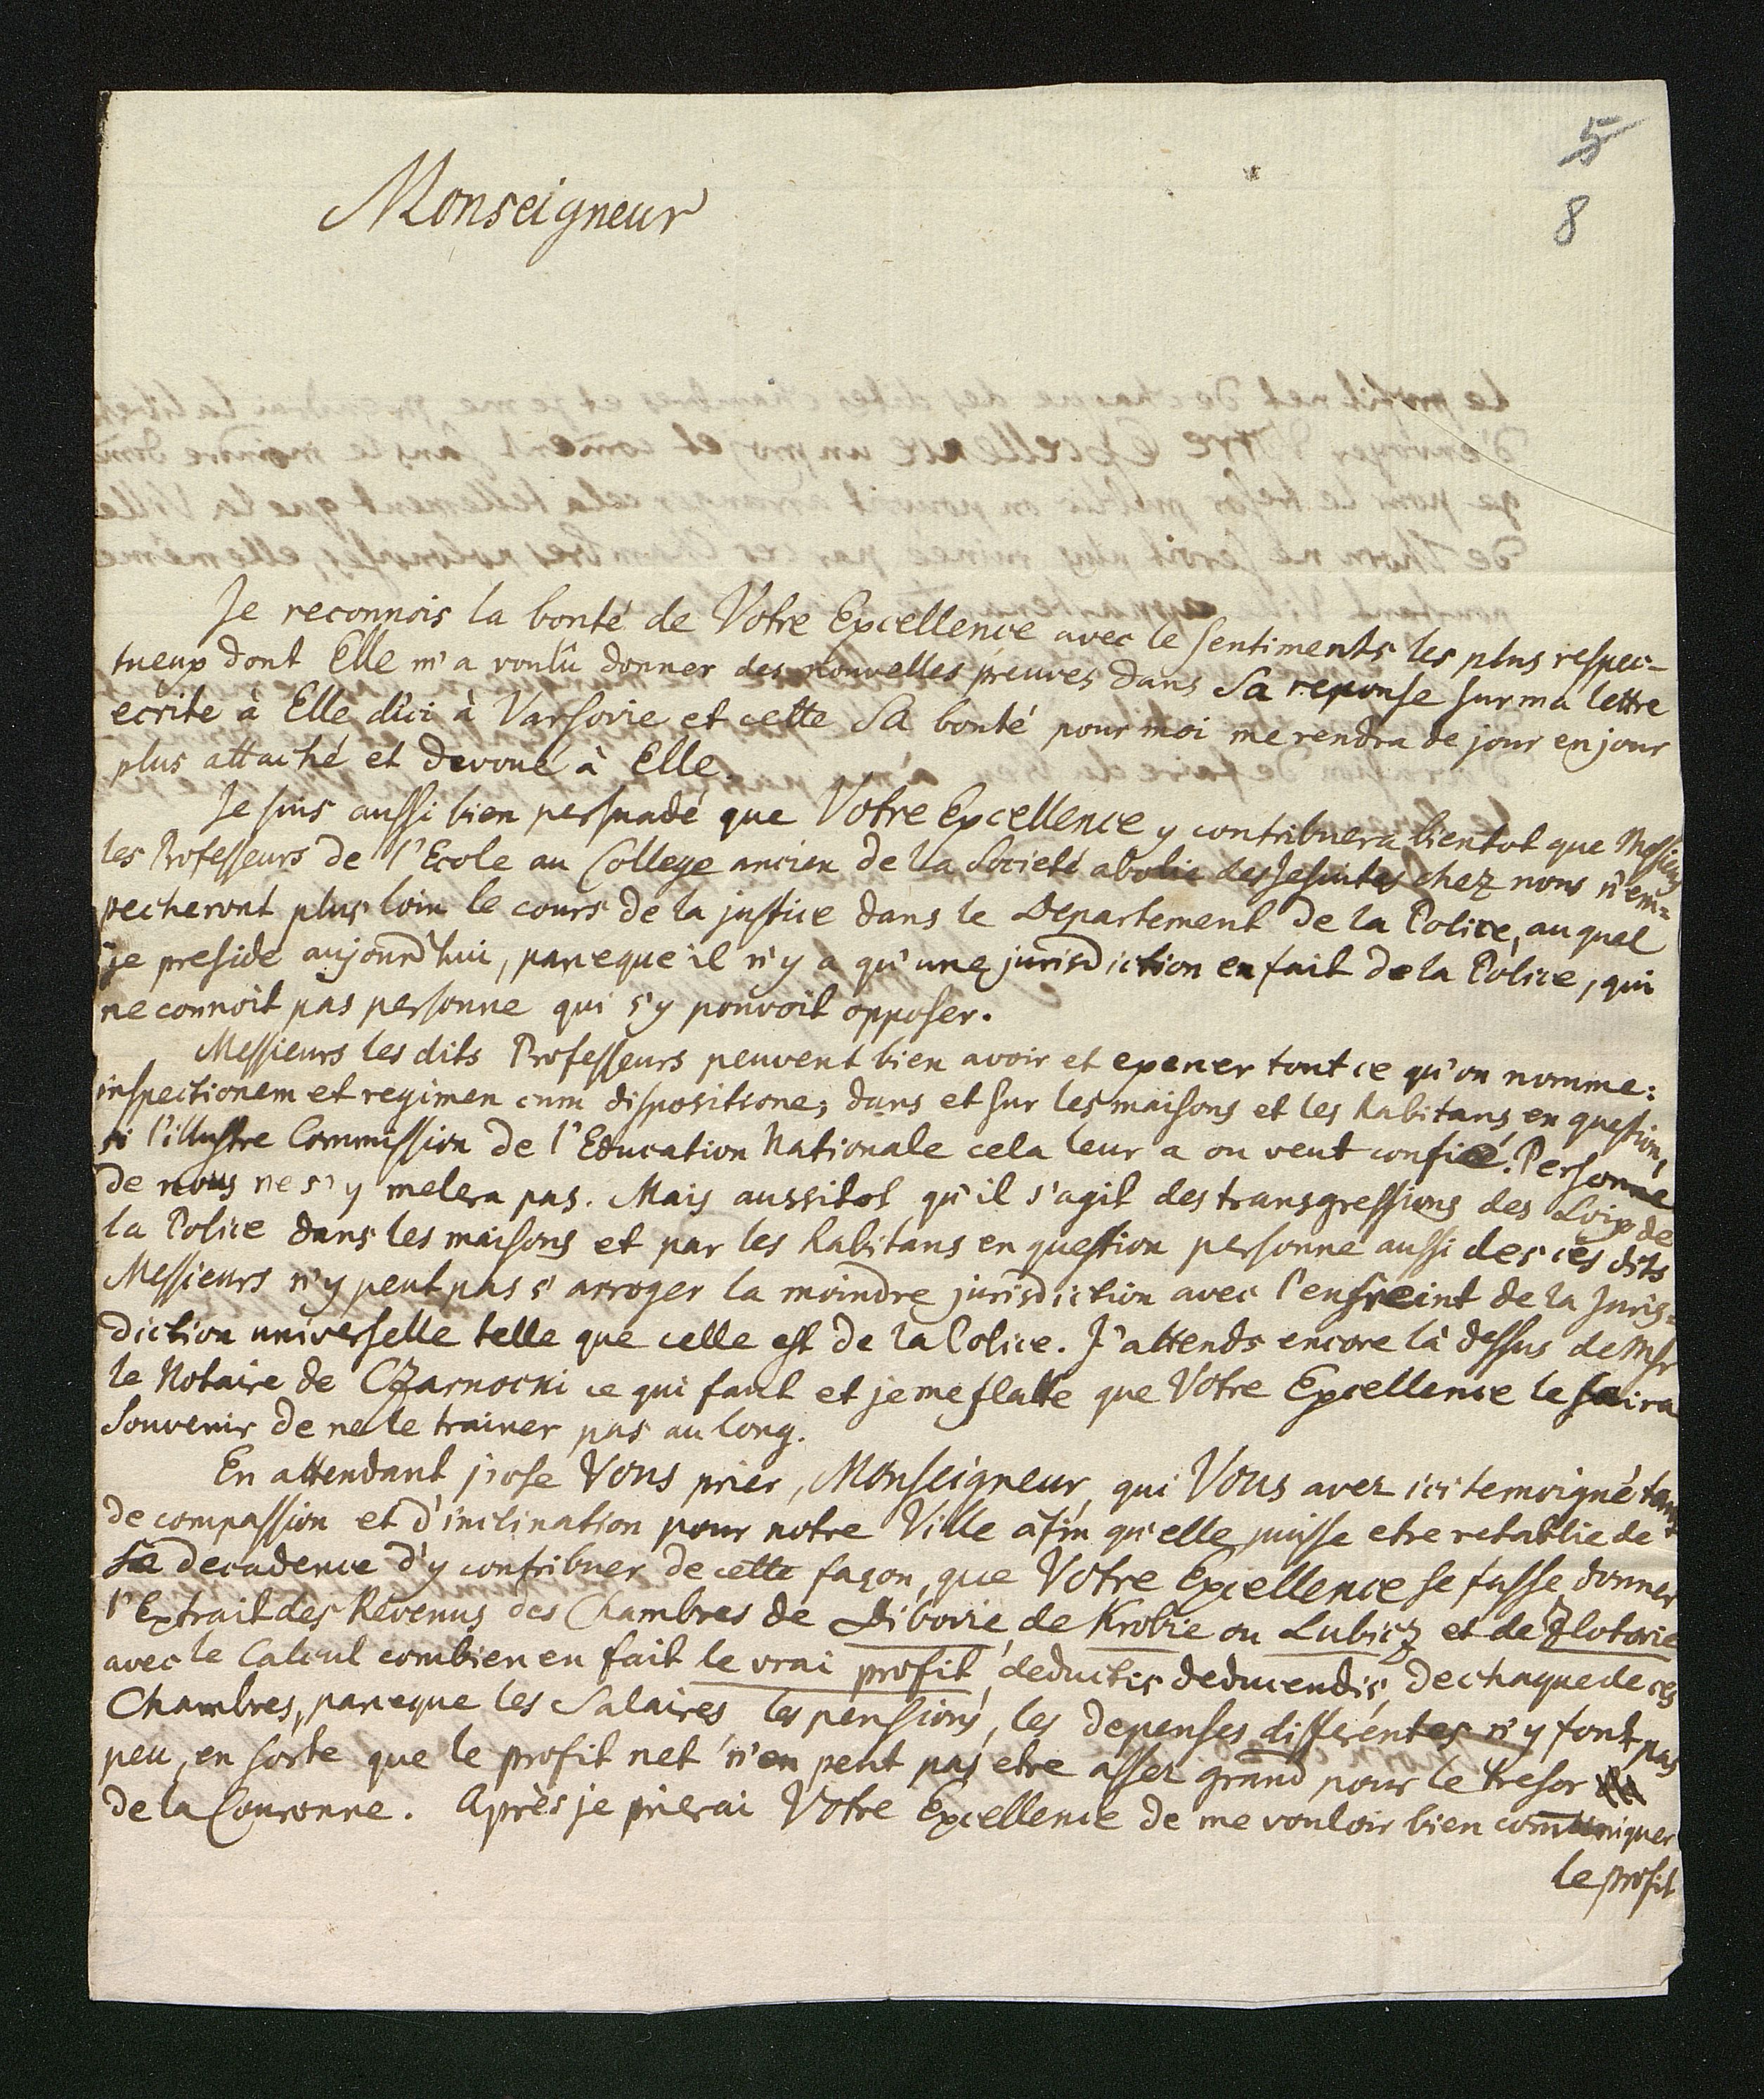 5
8
Monseigneur
Je reconnois la bonté de Votre Excellence avec le sentiments les plus respec-
tueux dont Elle m'a voulû donner des nouvelles preuves dans Sa reponse sur ma lettre
ecrite à Elle d'ici à Varsovie et cette Sa bonté pour moi me rendra de jour en jour
plus attaché et devoué à Elle.
Je suis aussi bien persuadé que Votre Excellence y contribuera bientot que Messieurs
les Professeurs de l'Ecole au College ancien de la Societé abolie des Jesuites chez nous n'em=
pecheront plus loin le cours de la justice dans le Departement de la Police, au quel
je preside aujourd'hui, parceque il n'y a qu'une jurisdiction en fait de la Police, qui
ne connoit pas personne qui s'y pouvoit opposer.
Messieurs les dits Professeurs peuvent bien avoir et exercer tout ce qu'on nomme:
inspectionem et regimen cum dispositione; dans et sur les maisons et les habitans en question,
si l'illustre Commission de l'Education Nationale cela leur a ou veut confié. Personne
de nous ne s'y melera pas. Mais aussitot qu'il s'agit des transgressions des Loix de
la Police dans les maisons et par les habitans en question personne aussi des ces dits
Messieurs n'y peut pas s'arroger la moindre jurisdiction avec l'enfreint de la Juris=
diction universelle telle que celle est de la Police. J'attends encore là dessus de Msr
le Notaire de Czarnocki ce qui faut et je me flatte que Votre Excellence le faira
souvenir de ne le trainer pas au long.
En attendant j'ose Vous prier, Monseigneur, qui Vous avez ici temoigné tant
de compassion et d'inclination pour notre Ville àfin qu'elle puisse etre retablie de
sa decadence d'y contribuer de cette façon, que Votre Excellence se fasse donner
l'Extrait des Revenus des Chambres de Dibovie, de Krobie ou Lubicz et de Zlotorie
avec le Calcul combien en fait le vrai profit, deductis deducendis, de chaque de ces
Chambres, parceque les Salaires les pensions, les depenses differentes n'y font pas
peu, en sorte que le profit net n'en peut pas etre assez grand pour le tresor
de la Couronne. Après je prierai Votre Excellence de me vouloir bien com̄uniquer
le profit